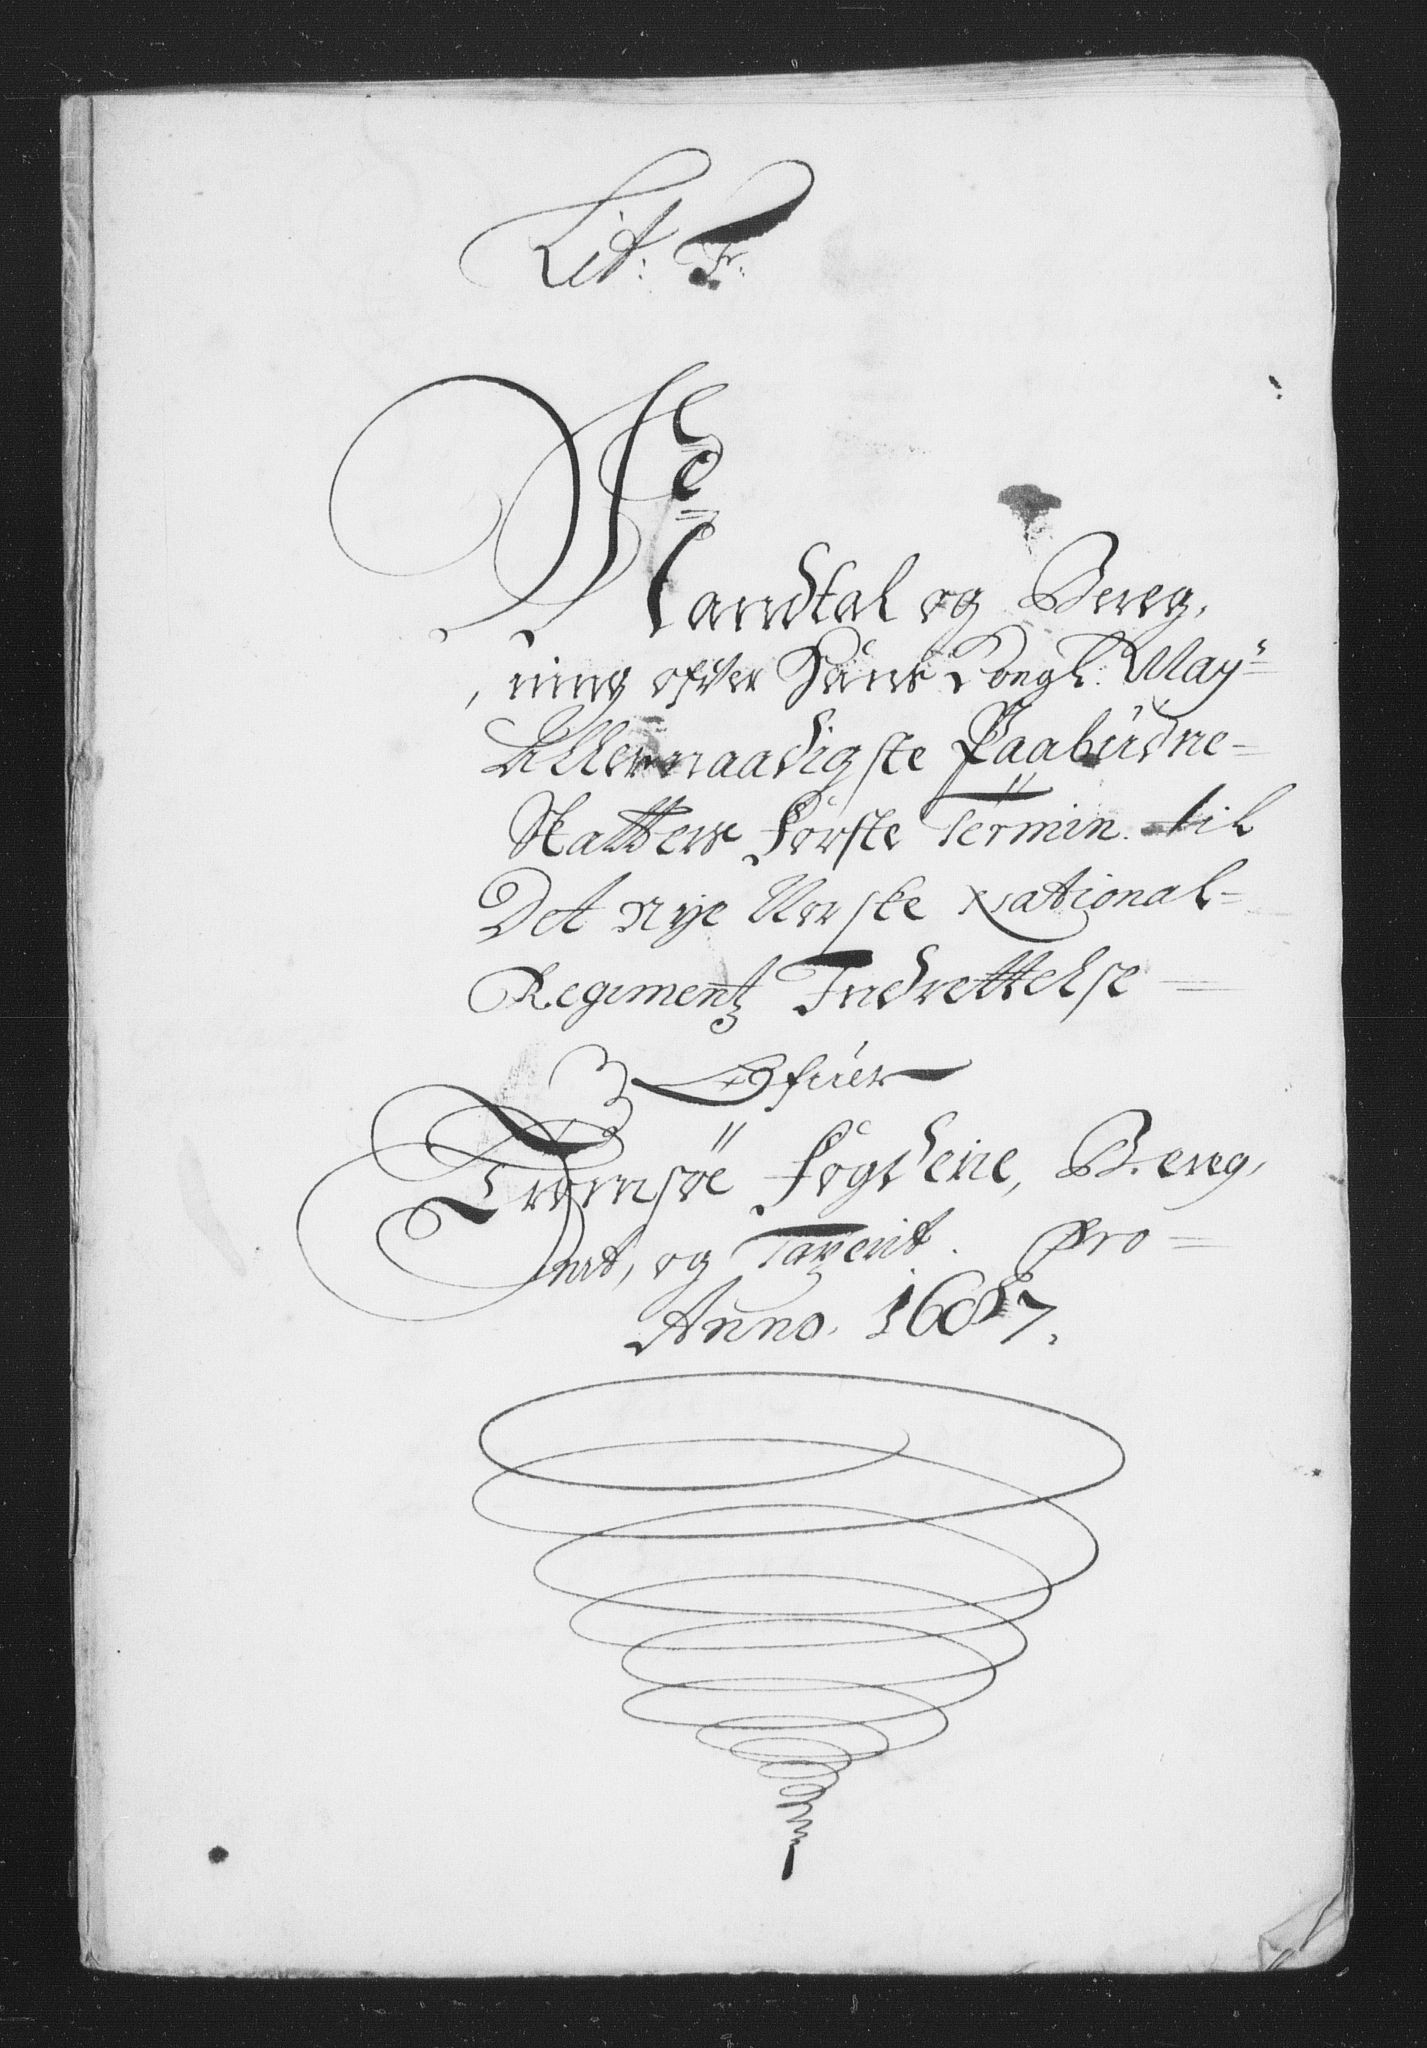 Lit: F.
Mandtal og Bereg,
,ning ofver Hans Kongl. Mayᵗˢ=
Allernaadigste Paabudne=
Skatters første Termin. til
Det nye Norske National=
Regimentz Indrettelse =
Ofuer
Tromsøe fogderie, Bereg,
net, og Taxerit. Pro=
Anno. 1687.